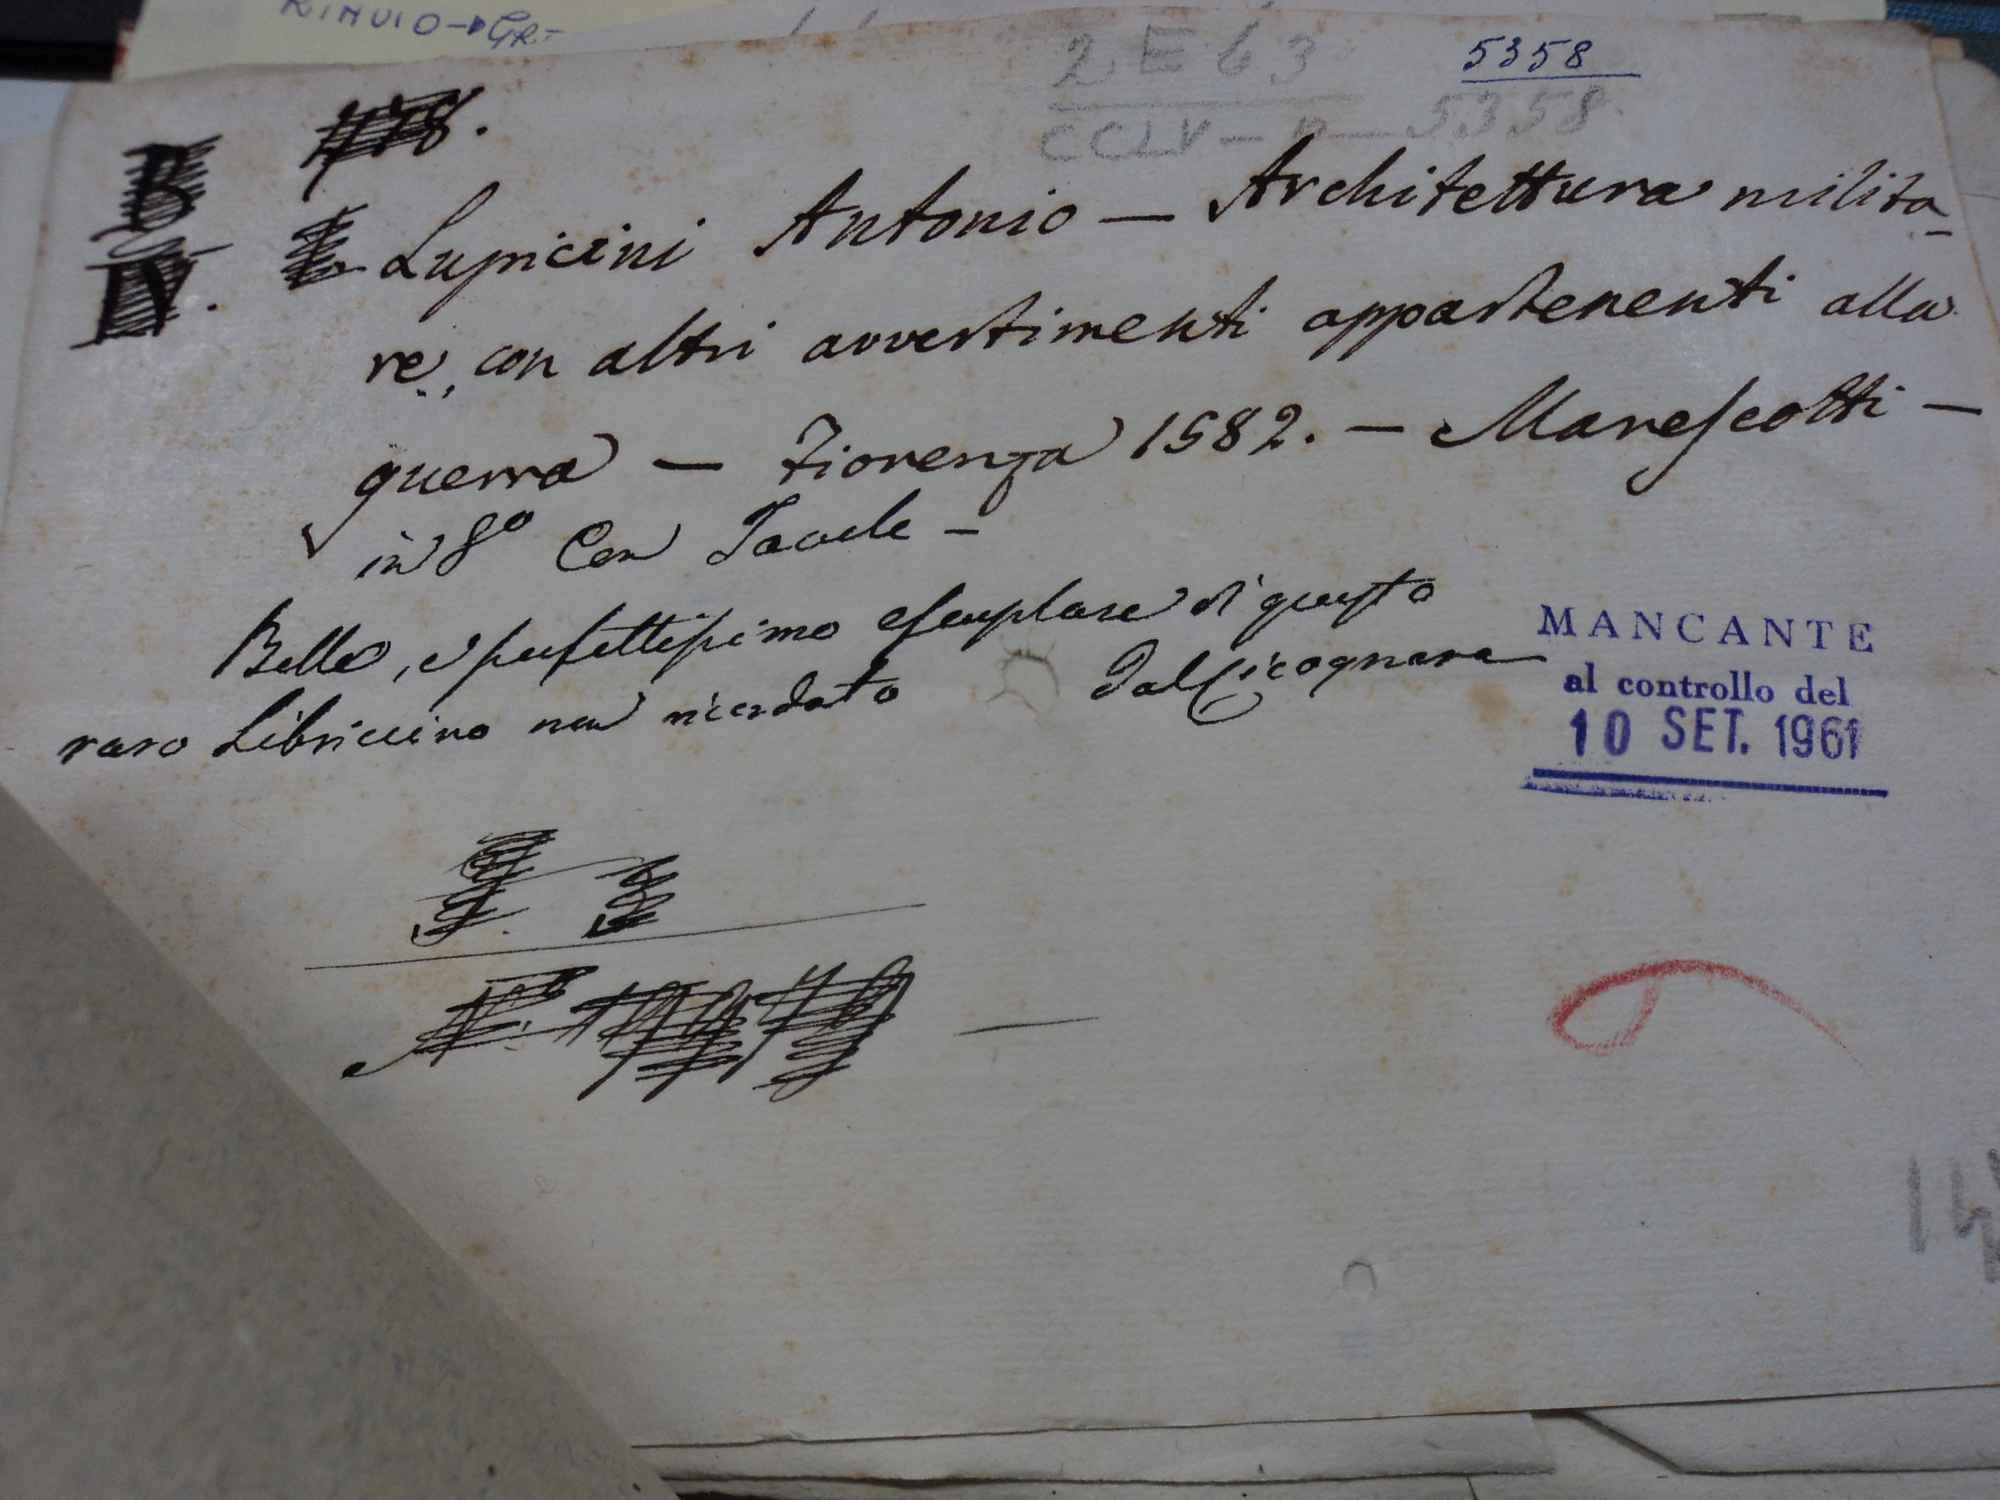 RINVIO → GR=
2 E 63
5358
CCLV — B — 5358.
B
IV.
Lupicini Antonio — Architettura milita-
re, con altri avvertimenti appartenenti alla
guerra — Fiorenza 1582. — Marescotti —
in 8° Con Tavole —
Bello, e perfettissimo esemplare di questo
raro Libriccino non ricordato dal Cicognara
MANCANTE
al controllo del
10 SET. 1961